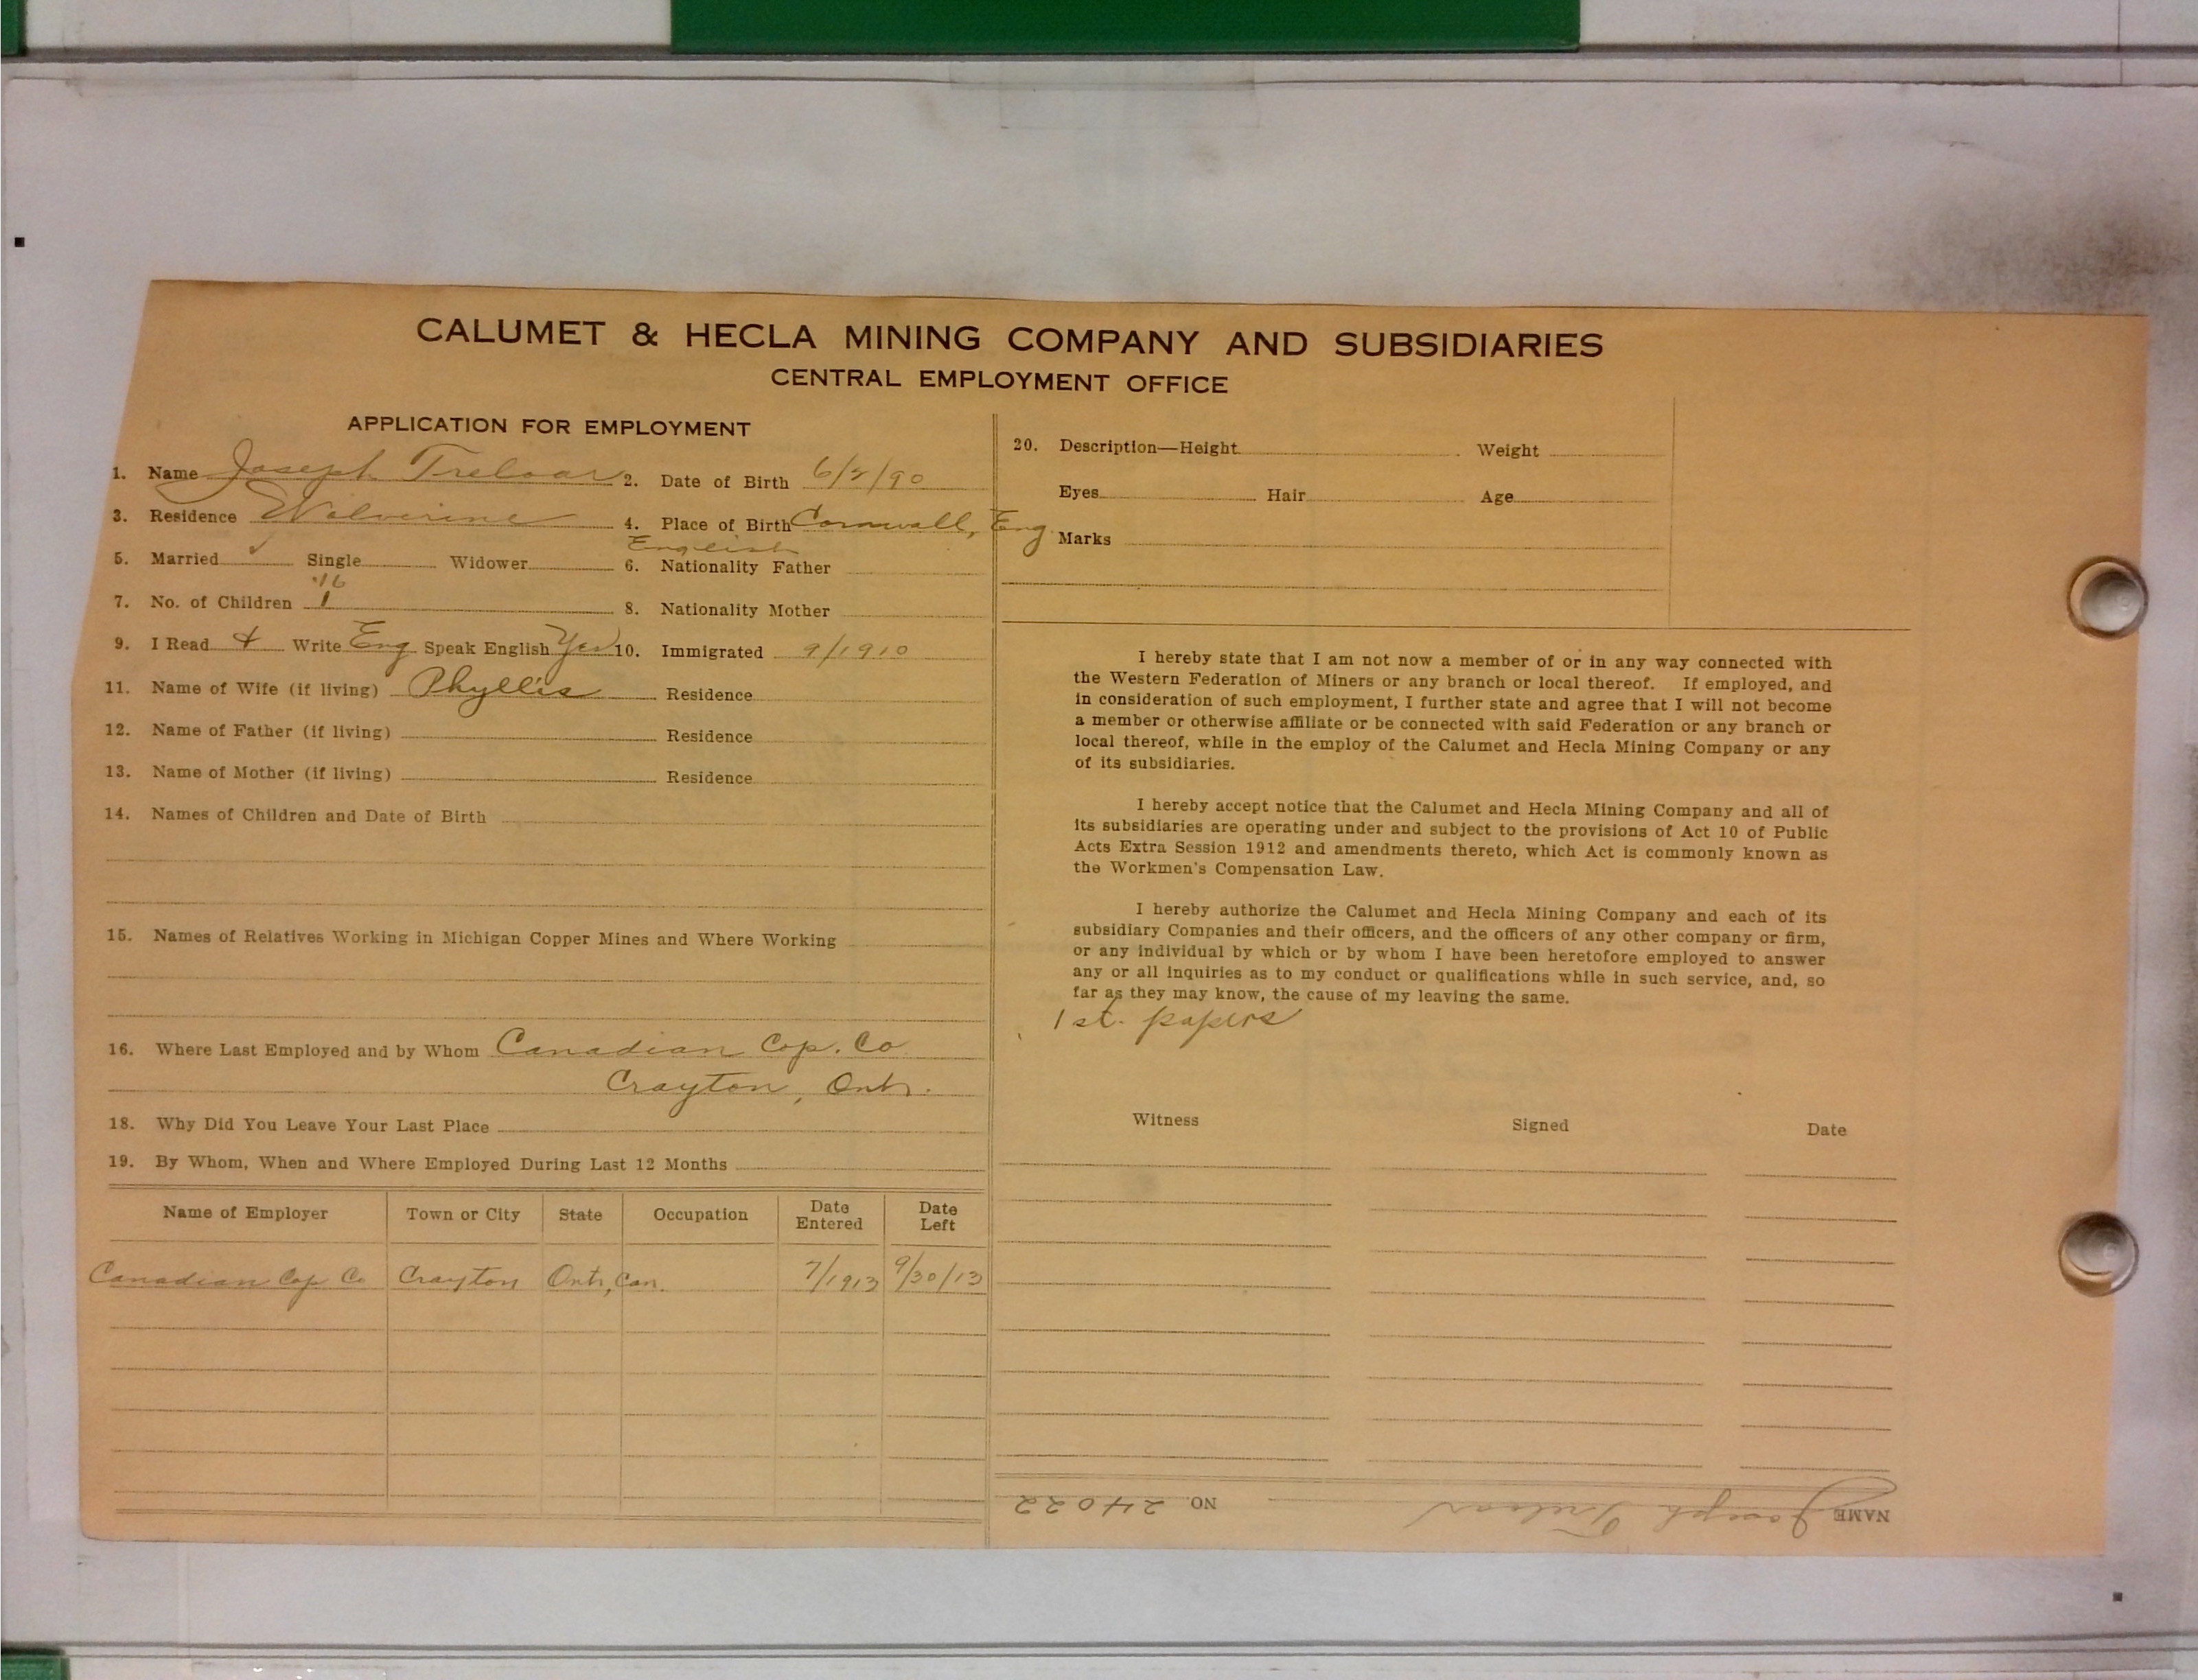 CALUMET & HECLA MINING COMPANY AND SUBSIDIARIES
CENTRAL EMPLOYMENT OFFICE
APPLICATION FOR EMPLOYMENT
1. Name Joseph Treloar 2. Date of Birth 6/2/90
3. Residence Wolverine 4. Place of Birth Cornwall, Eng
English
5. Married ✓ Single Widower 6. Nationality Father
'16
7. No. of Children 1 8. Nationality Mother
9. I Read + Write Eng Speak English Yes 10. Immigrated 9/1910
11. Name of Wife (if living) Phyllis Residence
12. Name of Father (if living) Residence
13. Name of Mother (if living) Residence
14. Names of Children and Date of Birth
15. Names of Relatives Working in Michigan Copper Mines and Where Working
16. Where Last Employed and by Whom Canadian Cop. Co
Crayton, Ont.
18. Why Did You Leave Your Last Place
19. By Whom, When and Where Employed During Last 12 Months
Name of Employer Town or City State Occupation Date Entered Date Left
Canadian Cop Co Crayton Ont, Can. 7/1913 9/30/13
20. Description—Height Weight
Eyes Hair Age
Marks
I hereby state that I am not now a member of or in any way connected with
the Western Federation of Miners or any branch or local thereof. If employed, and
in consideration of such employment, I further state and agree that I will not become
a member or otherwise affiliate or be connected with said Federation or any branch or
local thereof, while in the employ of the Calumet and Hecla Mining Company or any
of its subsidiaries.
I hereby accept notice that the Calumet and Hecla Mining Company and all of
its subsidiaries are operating under and subject to the provisions of Act 10 of Public
Acts Extra Session 1912 and amendments thereto, which Act is commonly known as
the Workmen's Compensation Law.
I hereby authorize the Calumet and Hecla Mining Company and each of its
subsidiary Companies and their officers, and the officers of any other company or firm,
or any individual by which or by whom I have been heretofore employed to answer
any or all inquiries as to my conduct or qualifications while in such service, and, so
far as they may know, the cause of my leaving the same.
1st. papers
Witness Signed Date
NAME Joseph Treloar NO. 24022